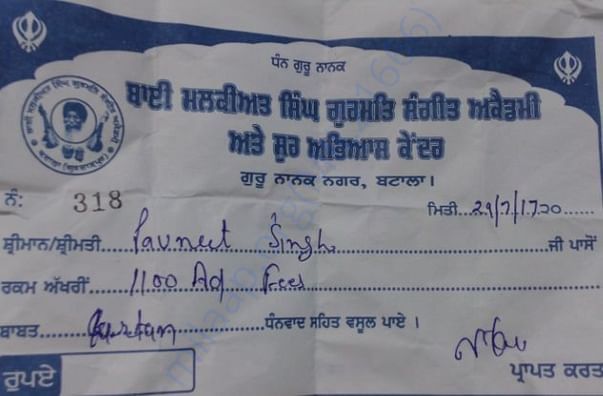 ਧੰਨ ਗੁਰੂ ਨਾਨਕ
ਬਾਈ ਮਲਕੀਅਤ ਸਿੰਘ ਗੁਰਮਤਿ ਸੰਗੀਤ ਅਕੈਡਮੀ
ਅਤੇ ਸੁਰ ਅਭਿਆਸ ਕੇਂਦਰ
ਗੁਰੂ ਨਾਨਕ ਨਗਰ, ਬਟਾਲਾ।
ਨੰ: 318 ਮਿਤੀ...
ਸ਼੍ਰੀਮਾਨ/ਸ਼੍ਰੀਮਤੀ... Pavneet Singh ...ਜੀ ਪਾਸੋਂ
ਰਕਮ ਅੱਖਰੀਂ... 1100 Ad Fees
ਬਾਬਤ... ਧੰਨਵਾਦ ਸਹਿਤ ਵਸੂਲ ਪਾਏ ।
ਰੁਪਏ ਪ੍ਰਾਪਤ ਕਰਤਾ